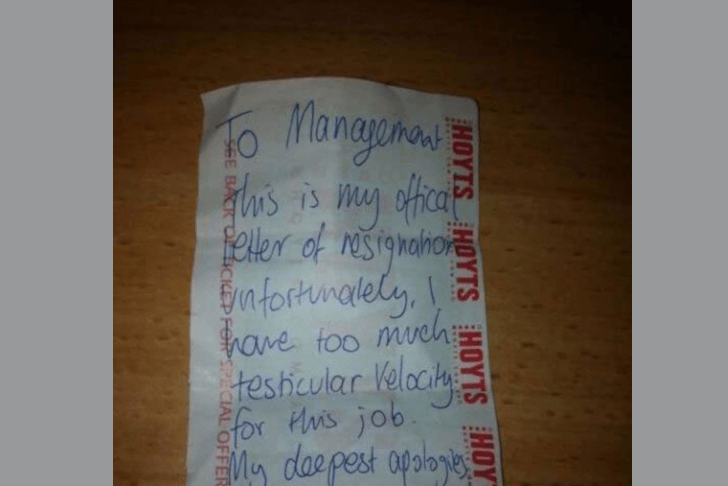 To Management
This is my offical
letter of resignation
unfortunately, I
have too much
testicular Velocity
for this job.
My deepest apologies
SEE BACK OF TICKET FOR SPECIAL OFFER
HOYTS
HOYTS
HOYTS
HOY